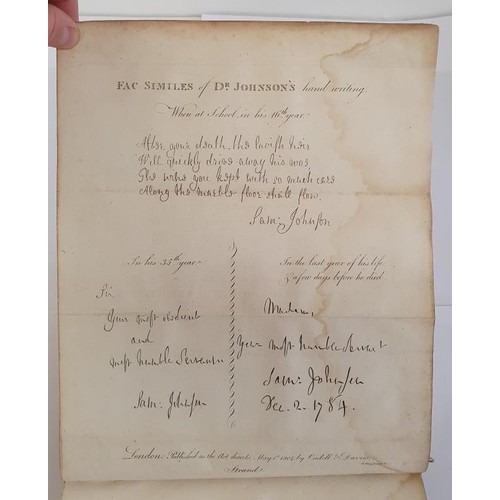 FAC SIMILES of DR. JOHNSON'S hand writing.
When at School, in his 16th year.
After your death, the lavish heir
Will quickly drive away his woe,
The wine you kept with so much care
Along the marble floor shall flow.
Sam: Johnson
In his 35th year.
Sir
Your most obedient
and
most humble Servant
Sam: Johnson
In the last year of his life,
& a few days before he died.
Madam,
Your most humble Servant
Sam: Johnson
Dec. 2. 1784.
London. Published as the Act directs, May 1804, by Cadell & Davies
Strand